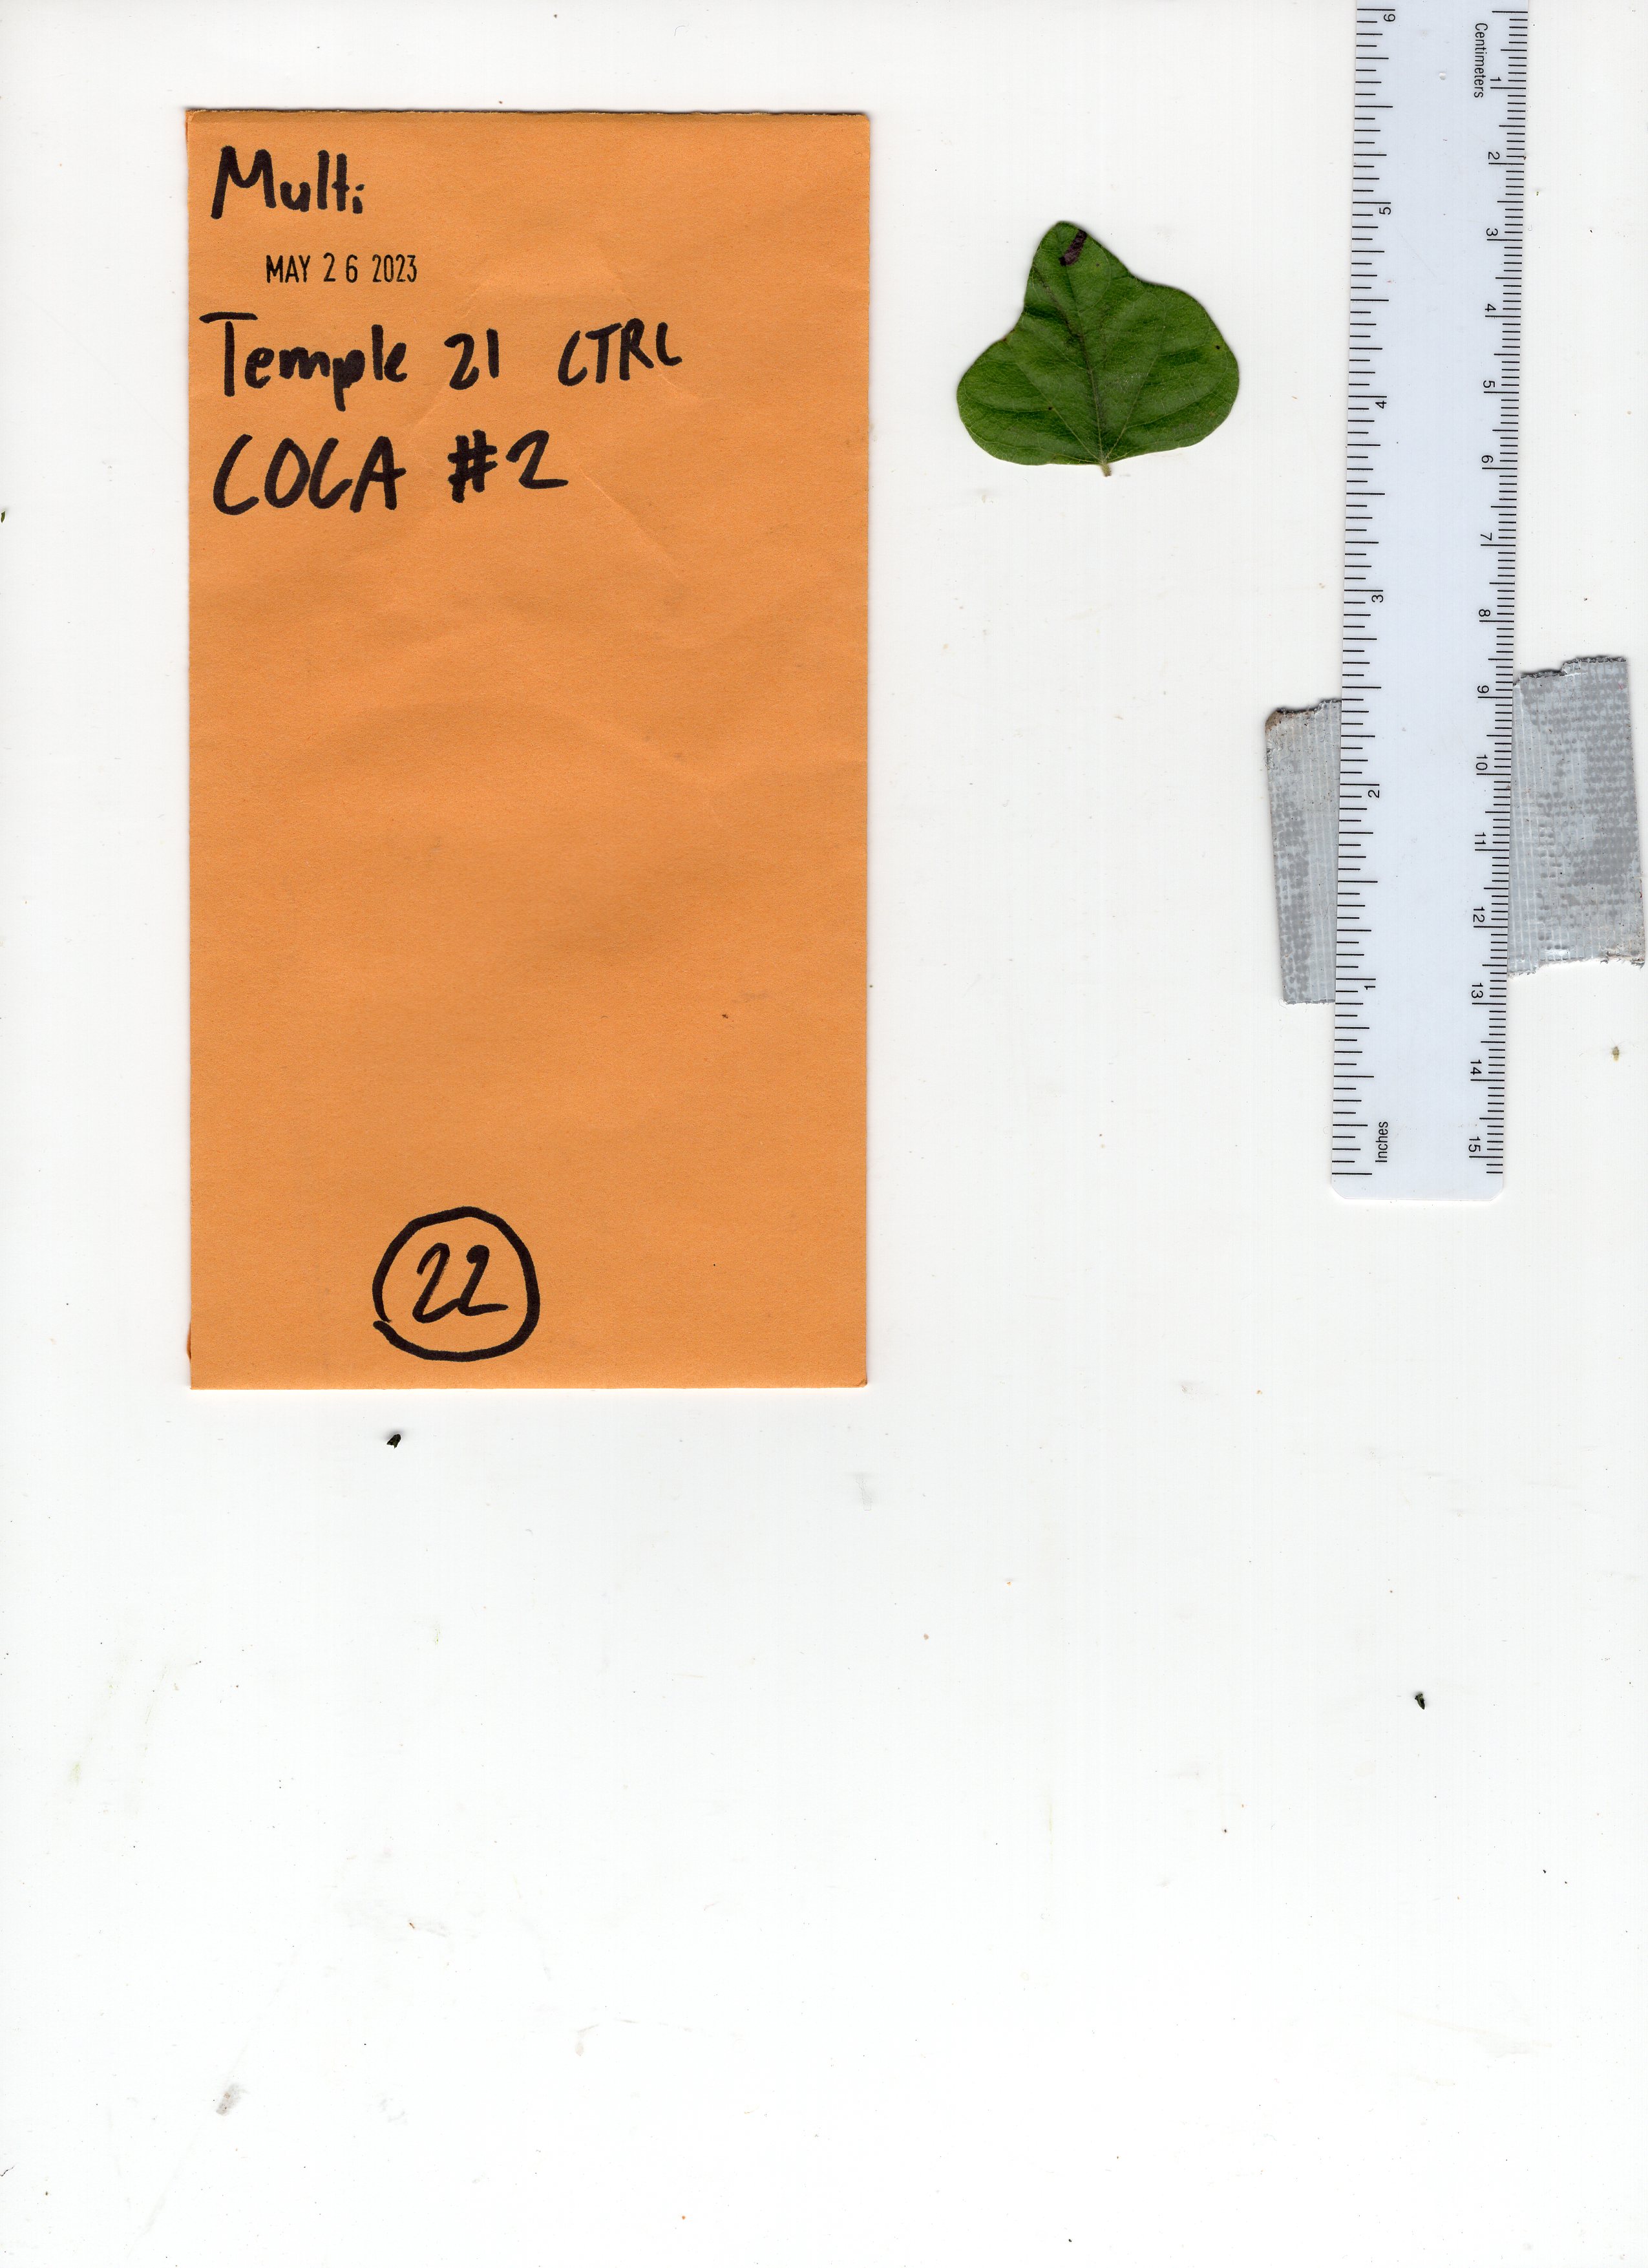 Multi
MAY 26 2023
Temple 21 CTRL
COCA #2
22
Centimeters
1 2 3 4 5 6 7 8 9 10 11 12 13 14 15
6 5 4 3 2 1
Inches